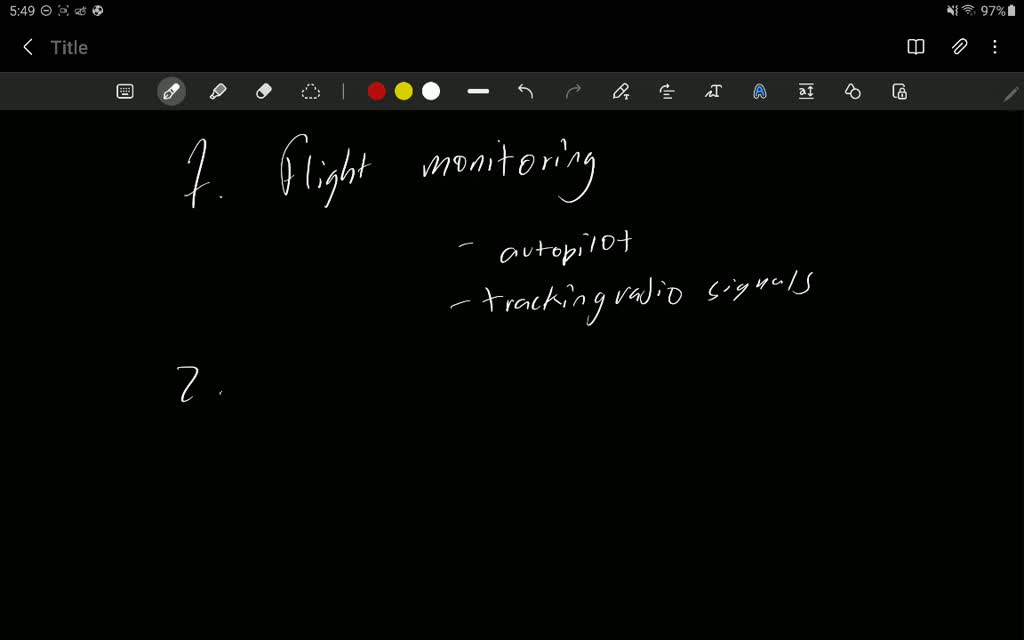 5:49 97%
Title
1. Flight monitoring
- autopilot
- tracking radio signals
2.